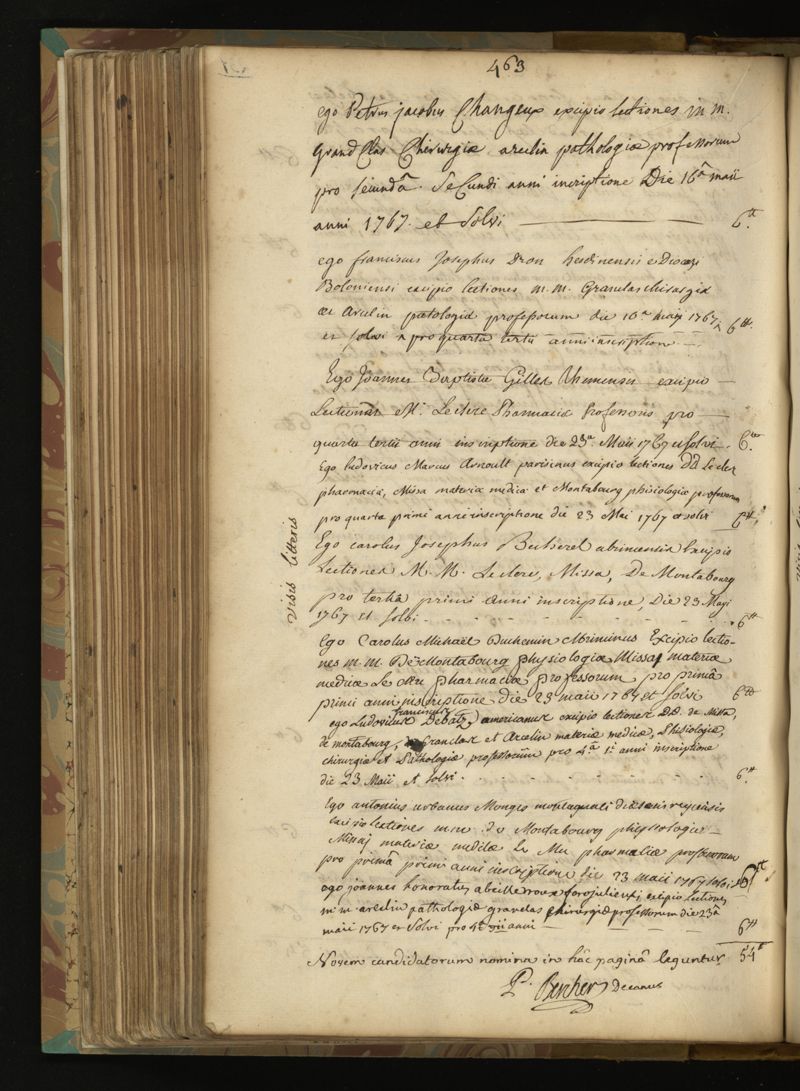 463
ego Petrus jacobus Changeux excipio lectiones in m.
grandClas Chirurgiæ arcelin pathologiæ professorum
pro secundâ. Secundi anni incriptione Die 16â maii
anni 1767. et Solvi 6tt.
ego franciscus Josephus Dron hesdinensis e Diocezi
Boloniensi excipio lectiones m.m. Granclas chirurgiæ
et Arcelin patologiæ professorum die 16a maij 1767
et solvi pro quarta tertii anni inscriptione 6tt.
Ego Joannes Baptista Gilles Rhemensis excipio
Lectiones M. Leclerc Pharmaciæ Professoris pro
quarta tertii anni inscriptione die 23a Maii 1767 et solvi. 6tt
Ego ludovicus Marcus Arnoult parisinus excipio lectiones DD Lecler
pharmaciæ, Missa materiæ medicæ et Montabourg phisiologiæ professorum
pro quarta primi anni inscriptione die 23 Mai 1767 et solvi 6tt.
Ego carolus Josephus Bertherel abrincensis Excipio
Lectiones M. M. Leclerc, Missa, De Montabourg
pro tertiâ primi anni inscriptione, Die 23 Maji
1767 et solvi 6tt
visis litteris
Ego Carolus Michaël Duchemin Excipio lectio-
nes m.m. De Montabourg physiologiæ Missa materiæ
medicæ Le clerc pharmaciæ professorum pro primâ
primi anni inscriptione die 23 maii 1767 et solvi 6tt
franciscus
ego Ludovicus Debatz americanus excipio lectiones DD. de Missa,
de montabourg, Granclas et Arcelin materiæ medicæ, Phisiologiæ,
chirurgiæ et Pathologiæ professorum pro 4a 1i anni inscriptione
die 23 Maii et solvi. 6tt.
Ego antonius urbanus Monges
excipio lectiones m.m. de Montabourg phisiologiæ
Missa materiæ medicæ Le pharmaciæ professorum
pro primâ primi anni inscriptione die 23 maii 1767 solvi 6tt
ego joannes honoratus forojuliensis excipio lectiones
m.m. arcelin pathologiæ granclas chirurgiæ professorum die 23â
maii 1767 et solvi pro 4a anni 6tt
Novem candidatorum nomina in hâc paginâ leguntur 54tt
P. Bercher Decanus